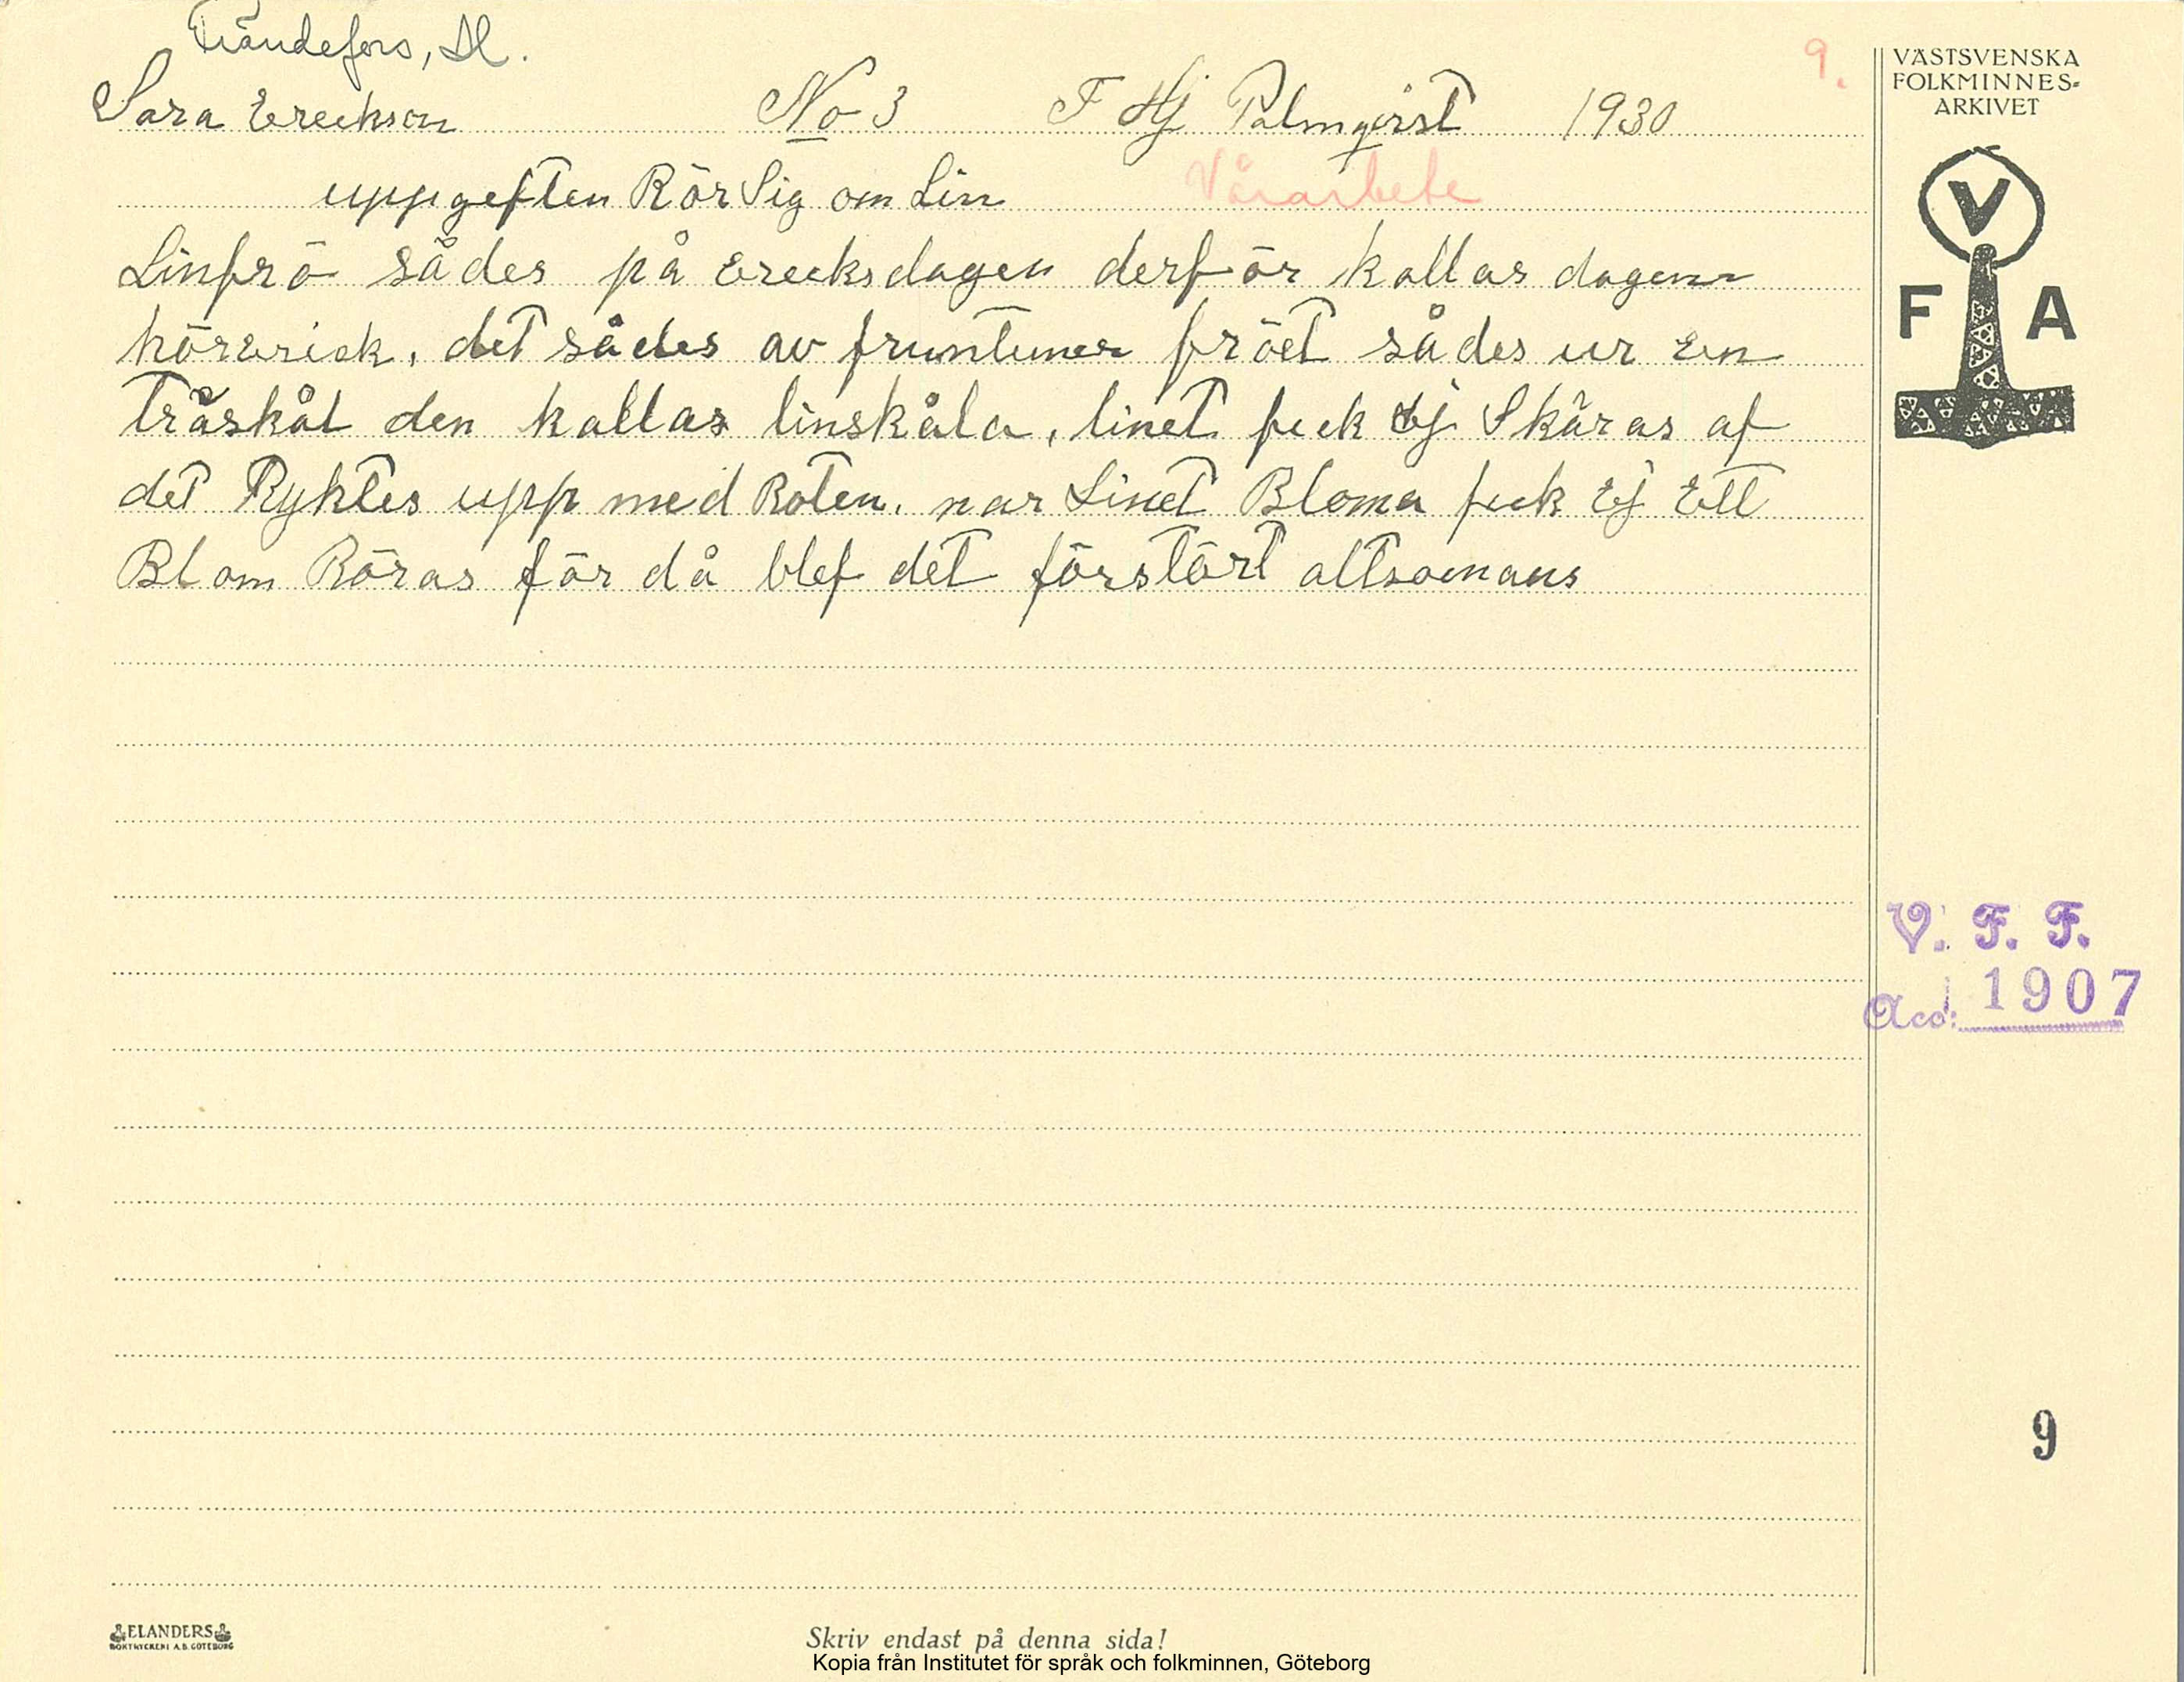 Frändefors, Dl.
9.
Sara Ereckson No 3 F Hj Palmqvist 1930
uppgeften Rör Sig om Lin Vårarbete
Linfrö sådes på Erecksdagen derför kallas dagen
hörerick. det sådes av fruntimer fröet sådes ur En
Träskål den kallas linskåla, linet feck Ej Skäras af
det Ryktes upp med Roten. nar Linet Bloma feck Ej Ett
Blom Röras för då blef det förstört altsamans
VÄSTSVENSKA
FOLKMINNES-
ARKIVET
V
F A
V. F. F.
Acc. 1907
9
ELANDERS
BOKTRYCKERI A.B. GÖTEBORG
Skriv endast på denna sida!
Kopia från Institutet för språk och folkminnen, Göteborg